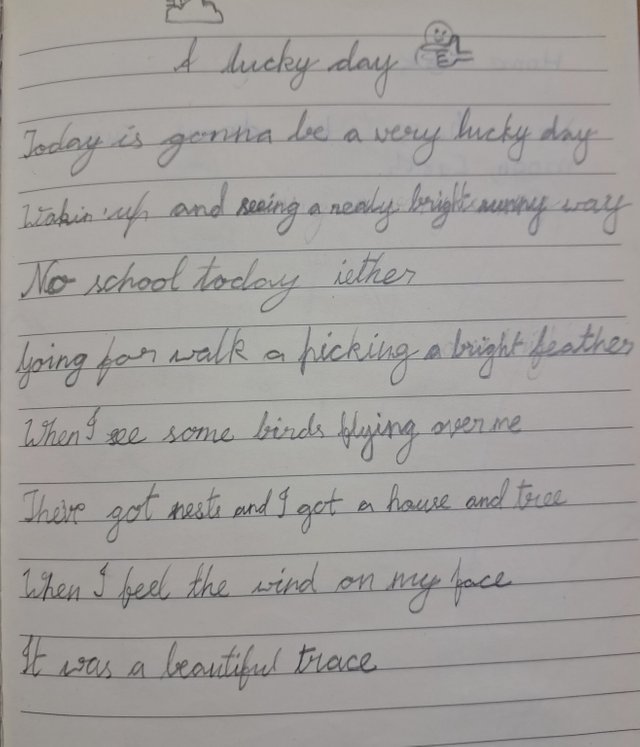 A lucky day
Today is gonna be a very lucky day
Wakin' up and seeing a ready bright sunny way
No school today iether
Going for walk a picking a bright feather
When I see some birds flying over me
They've got nests and I got a house and tree
When I feel the wind on my face
It was a beautiful trace